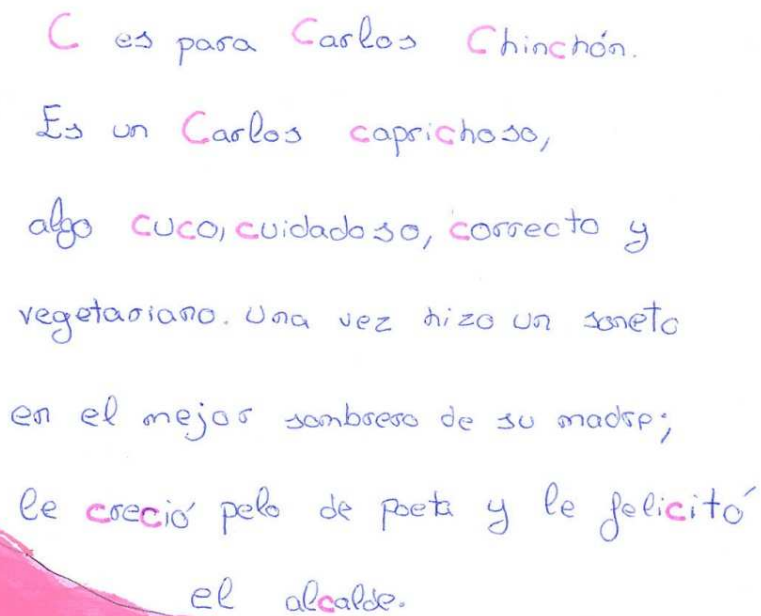 C es para Carlos Chinchón.
Es un Carlos caprichoso,
algo cuco, cuidadoso, correcto y
vegetariano. Una vez hizo un soneto
en el mejor sombrero de su madre;
le creció pelo de poeta y le felicitó
el alcalde.